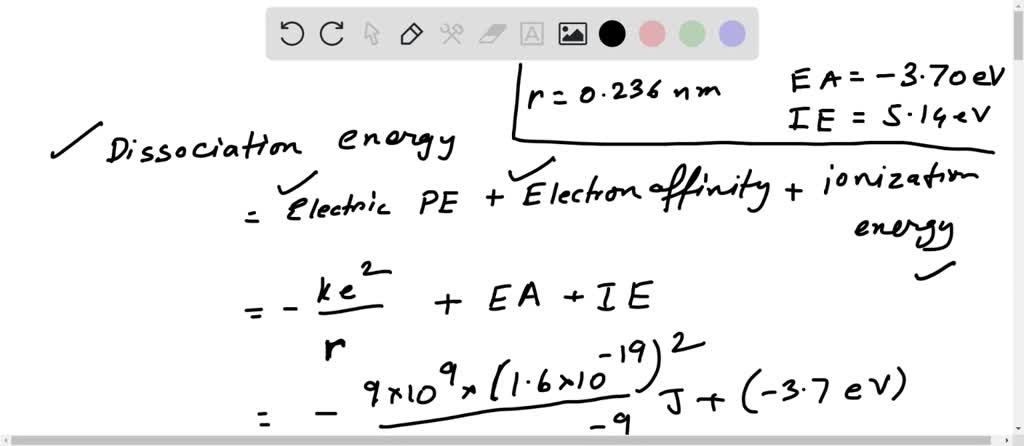 r = 0.236 nm
EA = -3.70 eV
IE = 5.14 eV
✓ Dissociation energy
= Electric PE + Electron affinity + ionization
energy
= - ke² / r + EA + IE
= - 9×10⁹ × (1.6×10⁻¹⁹)² / ⁻⁹ J + (-3.7 eV)